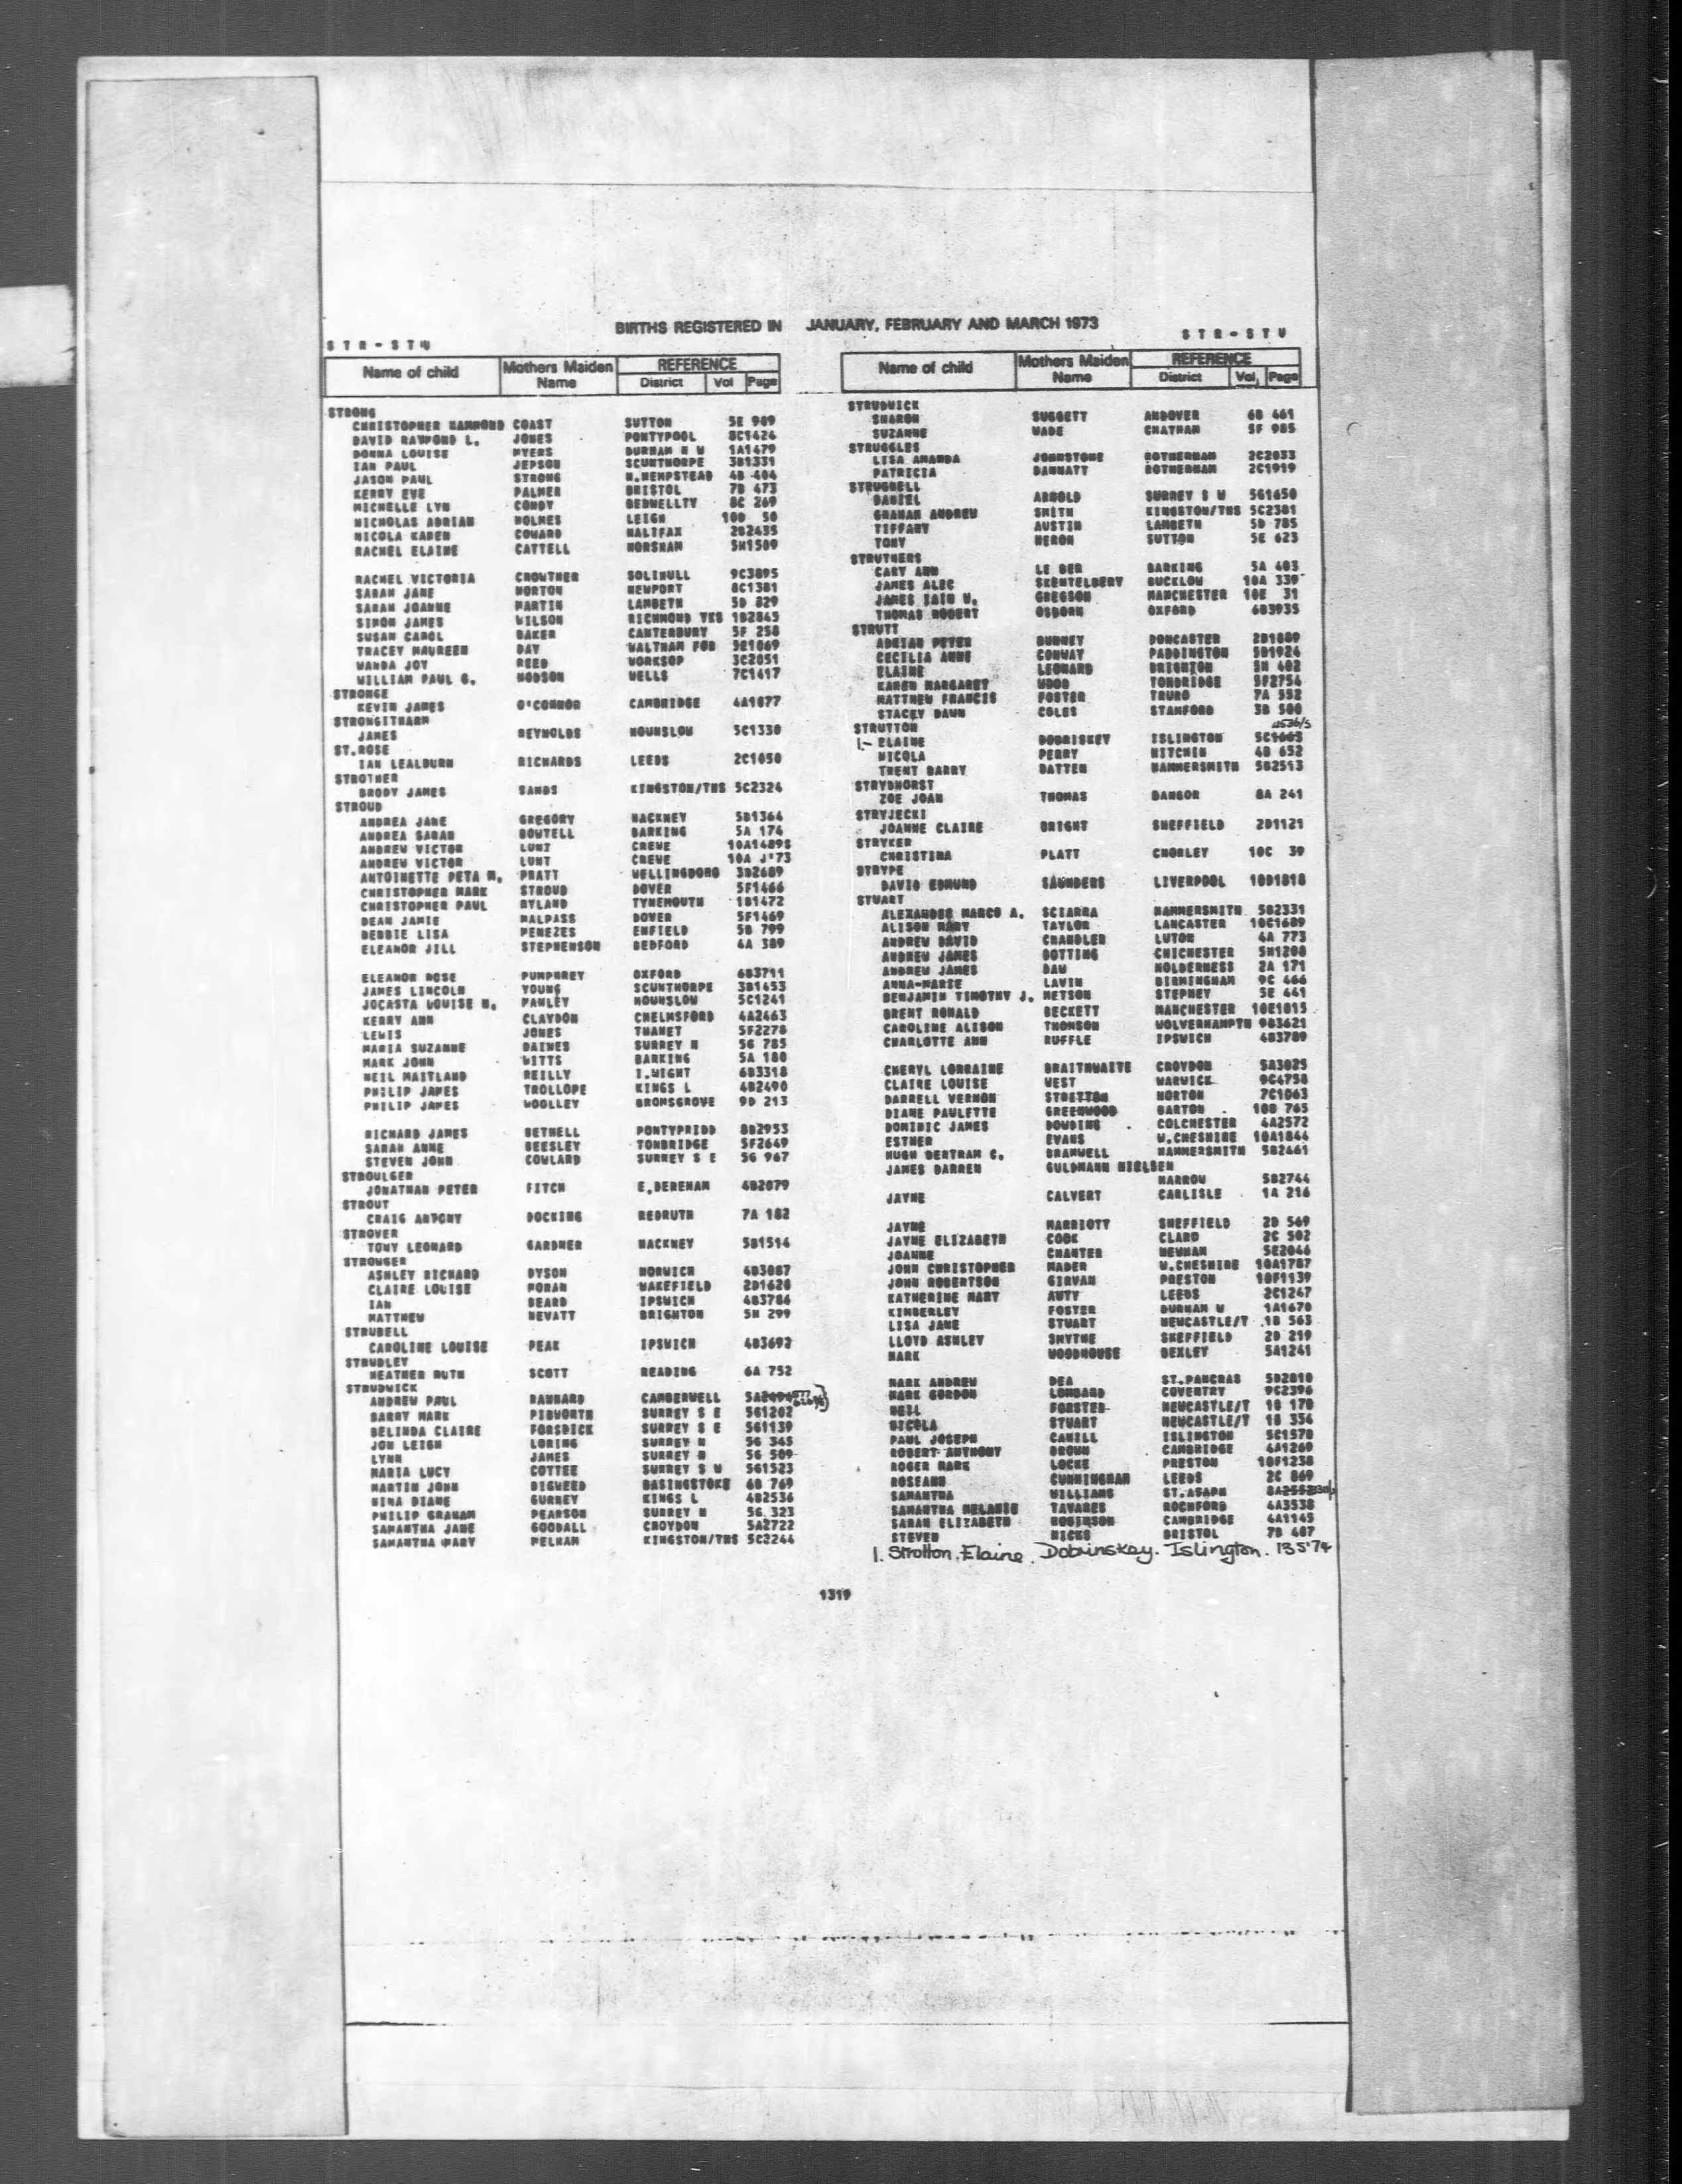 BIRTHS REGISTERED IN JANUARY, FEBRUARY AND MARCH 1973
STR-STU
Name of child Mothers Maiden Name REFERENCE District Vol Page
STRONG
CHRISTOPHER HAMMOND COAST SUTTON 5E 909
DAVID RAYMOND L. JONES PONTYPOOL 8C1424
DONNA LOUISE MYERS DURHAM N W 1A1479
IAN PAUL JEPSON SCUNTHORPE 3B1331
JASON PAUL STRONG H.HEMPSTEAD 4B 404
KERRY EVE PALMER BRISTOL 7B 473
MICHELLE LYN CONDY BEDWELLTY 8C 269
NICHOLAS ADRIAN HOLMES LEIGH 10D 50
NICOLA KAREN COWARD HALIFAX 2B2435
RACHEL ELAINE CATTELL HORSHAM 5H1509
RACHEL VICTORIA CROWTHER SOLIHULL 9C3895
SARAH JANE HORTON NEWPORT 8C1381
SARAH JOANNE MARTIN LAMBETH 5D 829
SIMON JAMES WILSON RICHMOND YKS 1B2845
SUSAN CAROL BAKER CANTERBURY 5F 258
TRACEY MAUREEN DAY WALTHAM FOR 5E1869
WANDA JOY REED WORKSOP 3C2051
WILLIAM PAUL G. HODSON WELLS 7C1417
STRONGE
KEVIN JAMES O'CONNOR CAMBRIDGE 4A1077
STRONGITHARM
JAMES REYNOLDS HOUNSLOW 5C1330
ST.ROSE
IAN LEALBURN RICHARDS LEEDS 2C1050
STROTHER
BRODY JAMES SANDS KINGSTON/THS 5C2324
STROUD
ANDREA JANE GREGORY HACKNEY 5B1364
ANDREA SARAH BOUTELL BARKING 5A 174
ANDREW VICTOR LUNT CREWE 10A1489S
ANDREW VICTOR LUNT CREWE 10A J'73
ANTOINETTE PETA M. PRATT WELLINGBORO 3B2689
CHRISTOPHER MARK STROUD DOVER 5F1466
CHRISTOPHER PAUL RYLAND TYNEMOUTH 1B1472
DEAN JAMIE MALPASS DOVER 5F1469
DEBBIE LISA MENEZES ENFIELD 5B 799
ELEANOR JILL STEPHENSON BEDFORD 4A 389
ELEANOR ROSE PUMPHREY OXFORD 6B3711
JAMES LINCOLN YOUNG SCUNTHORPE 3B1453
JOCASTA LOUISE H. PAWLEY HOUNSLOW 5C1241
KERRY ANN CLAYDON CHELMSFORD 4A2463
LEWIS JONES THANET 5F2278
MARIA SUZANNE DAINES SURREY N 5G 785
MARK JOHN WITTS BARKING 5A 180
NEIL MAITLAND REILLY I.WIGHT 6B3318
PHILIP JAMES TROLLOPE KINGS L 4B2490
PHILIP JAMES WOOLLEY BROMSGROVE 9D 213
RICHARD JAMES BETHELL PONTYPRIDD 8B2953
SARAH ANNE BEESLEY TONBRIDGE 5F2649
STEVEN JOHN COWLARD SURREY S E 5G 967
STROULGER
JONATHAN PETER FITCH E.DEREHAM 4B2079
STROUT
CRAIG ANTONY DOCKING REDRUTH 7A 182
STROVER
TONY LEONARD GARDNER HACKNEY 5B1514
STROWGER
ASHLEY RICHARD DYSON NORWICH 4B3087
CLAIRE LOUISE MORAN WAKEFIELD 2D1620
IAN BEARD IPSWICH 4B3786
MATTHEW HEVATT BRIGHTON 5H 299
STRUBELL
CAROLINE LOUISE PEAK IPSWICH 4B3692
STRUDLEY
HEATHER RUTH SCOTT READING 6A 752
STRUDWICK
ANDREW PAUL BANNARD CAMBERWELL
BARRY MARK PIBWORTH SURREY S E 5G1202
BELINDA CLAIRE FORSDICK SURREY S E 5G1139
JON LEIGH LORING SURREY N 5G 345
LYNN JAMES SURREY N 5G 509
MARIA LUCY COTTEE SURREY S W 5G1523
MARTIN JOHN BIGWEED BASINGSTOKE 6B 769
NINA DIANE GURNEY KINGS L 4B2536
PHILIP GRAHAM PEARSON SURREY N 5G 323
SAMANTHA JANE GOODALL CROYDON 5A2722
SAMANTHA MARY PELHAM KINGSTON/THS 5C2244
STR-STU
Name of child Mothers Maiden Name REFERENCE District Vol. Page
STRUDWICK
SHARON SUGGETT ANDOVER 6B 461
SUZANNE WADE CHATHAM 5F 985
STRUGGLES
LISA AMANDA JOHNSTONE ROTHERHAM 2C2033
PATRICIA DANNATT ROTHERHAM 2C1919
STRUGNELL
DANIEL ARNOLD SURREY S W 5G1650
GRAHAM ANDREW SMITH KINGSTON/THS 5C2301
TIFFANY AUSTIN LAMBETH 5D 785
TONY HERON SUTTON 5E 623
STRUTHERS
CARY ANN LE BER BARKING 5A 403
JAMES ALEC SKENTELBERY BUCKLOW 10A 339
JAMES IAIN W. GREGSON MANCHESTER 10E 31
THOMAS ROBERT OSBORN OXFORD 6B3935
STRUTT
ADRIAN PETER BURNEY DONCASTER 2D1089
CECILIA ANNE CONWAY PADDINGTON 5D1924
ELAINE LEONARD BRIGHTON 5H 402
KAREN MARGARET WOOD TONBRIDGE 5F2756
MATTHEW FRANCIS FOSTER TRURO 7A 552
STACEY DAWN COLES STAMFORD 3B 500
STRUTTON
1.- ELAINE DOBRISKEY ISLINGTON
NICOLA PERRY HITCHIN 4B 652
TRENT BARRY BATTEN HAMMERSMITH 5B2513
STRYDHORST
ZOE JOAN THOMAS BANGOR 8A 241
STRYJECKI
JOANNE CLAIRE BRIGHT SHEFFIELD 2D1121
STRYKER
CHRISTINA PLATT CHORLEY 10C 39
STRYPE
DAVID EDMUND SAUNDERS LIVERPOOL 10D1818
STUART
ALEXANDER MARCO A. SCIARRA HAMMERSMITH 5B2331
ALISON MARY TAYLOR LANCASTER 10C1689
ANDREW DAVID CHANDLER LUTON 4A 773
ANDREW JAMES BOTTING CHICHESTER 5H1208
ANDREW JAMES DAW HOLDERNESS 2A 171
ANNA-MARIE LAVIN BIRMINGHAM 9C 466
BENJAMIN TIMOTHY J. METSON STEPNEY 5E 441
BRENT RONALD BECKETT MANCHESTER 10E1015
CAROLINE ALISON THOMSON WOLVERHAMPTN 9B3621
CHARLOTTE ANN RUFFLE IPSWICH 4B3789
CHERYL LORRAINE BRAITHWAITE CROYDON 5A3025
CLAIRE LOUISE WEST WARWICK 9C4758
DARRELL VERNON STRETTON NORTON 7C1063
DIANE PAULETTE GREENWOOD BARTON 10B 765
DOMINIC JAMES DOWDING COLCHESTER 4A2572
ESTHER EVANS W.CHESHIRE 10A1844
HUGH BERTRAM C. BRAMWELL HAMMERSMITH 5B2461
JAMES DARREN GULDMANN NIELSEN
HARROW 5B2744
JAYNE CALVERT CARLISLE 1A 216
JAYNE MARRIOTT SHEFFIELD 2D 549
JAYNE ELIZABETH COOK CLARO 2C 502
JOANNE CHANTER NEWHAM 5E2046
JOHN CHRISTOPHER MADER W.CHESHIRE 10A1787
JOHN ROBERTSON GIRVAN PRESTON 10F1139
KATHERINE MARY AUTY LEEDS 2C1247
KIMBERLEY FOSTER DURHAM W 1A1670
LISA JANE STUART NEWCASTLE/T 1B 563
LLOYD ASHLEY SMYTHE SHEFFIELD 2D 219
MARK WOODHOUSE BEXLEY 5A1241
MARK ANDREW DEA ST.PANCRAS 5D2810
MARK GORDON LOMBARD COVENTRY 9C2396
NEIL FORSTER NEWCASTLE/T 1B 170
NICOLA STUART NEWCASTLE/T 1B 354
PAUL JOSEPH CAHILL ISLINGTON 5C1570
ROBERT ANTHONY BROWN CAMBRIDGE 4A1269
ROGER MARK LOCKE PRESTON 10F1238
ROSEANN CUNNINGHAM LEEDS 2C 869
SAMANTHA WILLIAMS ST.ASAPH
SAMANTHA MELANIE TAVARES ROCHFORD 4A3538
SARAH ELIZABETH ROBINSON CAMBRIDGE 4A1145
STEVEN HICKS BRISTOL 7B 487
1. Strotton. Elaine. Dobrinskey. Islington. 13 5'74
1319